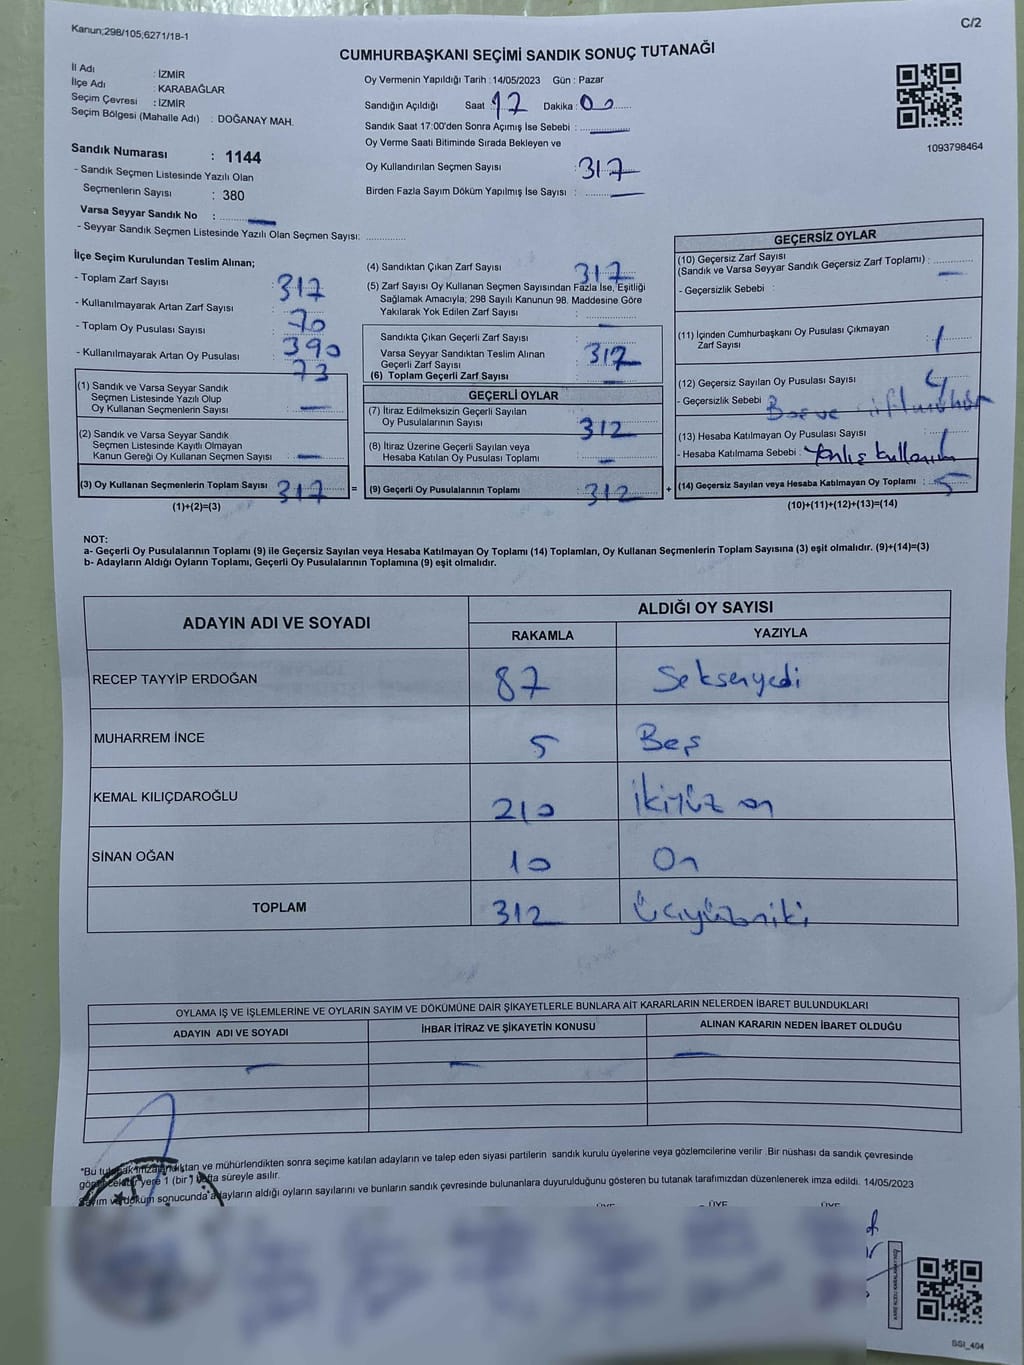 Kanun;298/105;6271/18-1
C/2
CUMHURBAŞKANI SEÇİMİ SANDIK SONUÇ TUTANAĞI
İl Adı : İZMİR
İlçe Adı : KARABAĞLAR
Seçim Çevresi : İZMİR
Seçim Bölgesi (Mahalle Adı) : DOĞANAY MAH.
Oy Vermenin Yapıldığı Tarih : 14/05/2023 Gün : Pazar
Sandığın Açıldığı Saat : 17 Dakika : 00
Sandık Saat 17:00'den Sonra Açımış İse Sebebi :
Oy Verme Saati Bitiminde Sırada Bekleyen ve
Oy Kullandırılan Seçmen Sayısı : 317
Birden Fazla Sayım Döküm Yapılmış İse Sayısı :
1093798464
Sandık Numarası : 1144
- Sandık Seçmen Listesinde Yazılı Olan
Seçmenlerin Sayısı : 380
Varsa Seyyar Sandık No :
- Seyyar Sandık Seçmen Listesinde Yazılı Olan Seçmen Sayısı:
İlçe Seçim Kurulundan Teslim Alınan;
- Toplam Zarf Sayısı : 317
- Kullanılmayarak Artan Zarf Sayısı : 70
- Toplam Oy Pusulası Sayısı : 390
- Kullanılmayarak Artan Oy Pusulası : 73
(1) Sandık ve Varsa Seyyar Sandık
Seçmen Listesinde Yazılı Olup
Oy Kullanan Seçmenlerin Sayısı :
(2) Sandık ve Varsa Seyyar Sandık
Seçmen Listesinde Kayıtlı Olmayan
Kanun Gereği Oy Kullanan Seçmen Sayısı :
(3) Oy Kullanan Seçmenlerin Toplam Sayısı : 317 =
(1)+(2)=(3)
(4) Sandıktan Çıkan Zarf Sayısı : 317
(5) Zarf Sayısı Oy Kullanan Seçmen Sayısından Fazla İse, Eşitliği
Sağlamak Amacıyla; 298 Sayılı Kanunun 98. Maddesine Göre
Yakılarak Yok Edilen Zarf Sayısı :
Sandıkta Çıkan Geçerli Zarf Sayısı :
Varsa Seyyar Sandıktan Teslim Alınan
Geçerli Zarf Sayısı : 317
(6) Toplam Geçerli Zarf Sayısı :
GEÇERLİ OYLAR
(7) İtiraz Edilmeksizin Geçerli Sayılan
Oy Pusulalarının Sayısı : 312
(8) İtiraz Üzerine Geçerli Sayılan veya
Hesaba Katılan Oy Pusulası Toplamı :
(9) Geçerli Oy Pusulalarının Toplamı : 312 +
GEÇERSİZ OYLAR
(10) Geçersiz Zarf Sayısı
(Sandık ve Varsa Seyyar Sandık Geçersiz Zarf Toplamı) :
- Geçersizlik Sebebi :
(11) İçinden Cumhurbaşkanı Oy Pusulası Çıkmayan
Zarf Sayısı : 1
(12) Geçersiz Sayılan Oy Pusulası Sayısı : 4
- Geçersizlik Sebebi :
(13) Hesaba Katılmayan Oy Pusulası Sayısı :
- Hesaba Katılmama Sebebi : Yanlış kullanım
(14) Geçersiz Sayılan veya Hesaba Katılmayan Oy Toplamı : 5
(10)+(11)+(12)+(13)=(14)
NOT:
a- Geçerli Oy Pusulalarının Toplamı (9) ile Geçersiz Sayılan veya Hesaba Katılmayan Oy Toplamı (14) Toplamları, Oy Kullanan Seçmenlerin Toplam Sayısına (3) eşit olmalıdır. (9)+(14)=(3)
b- Adayların Aldığı Oyların Toplamı, Geçerli Oy Pusulalarının Toplamına (9) eşit olmalıdır.
ADAYIN ADI VE SOYADI
ALDIĞI OY SAYISI
RAKAMLA YAZIYLA
RECEP TAYYİP ERDOĞAN 87 Seksenyedi
MUHARREM İNCE 5 Beş
KEMAL KILIÇDAROĞLU 210 ikiyüz on
SİNAN OĞAN 10 On
TOPLAM 312 Üçyüzoniki
OYLAMA İŞ VE İŞLEMLERİNE VE OYLARIN SAYIM VE DÖKÜMÜNE DAİR ŞİKAYETLERLE BUNLARA AİT KARARLARIN NELERDEN İBARET BULUNDUKLARI
ADAYIN ADI VE SOYADI İHBAR İTİRAZ VE ŞİKAYETİN KONUSU ALINAN KARARIN NEDEN İBARET OLDUĞU
"Bu tutanak imzalandıktan ve mühürlendikten sonra seçime katılan adayların ve talep eden siyasi partilerin sandık kurulu üyelerine veya gözlemcilerine verilir. Bir nüshası da sandık çevresinde
görülecek bir yere 1 (bir) hafta süreyle asılır.
Sayım ve döküm sonucunda adayların aldığı oyların sayılarını ve bunların sandık çevresinde bulunanlara duyurulduğunu gösteren bu tutanak tarafımızdan düzenlenerek imza edildi. 14/05/2023
ÜYE ÜYE ÜYE
SSI_404